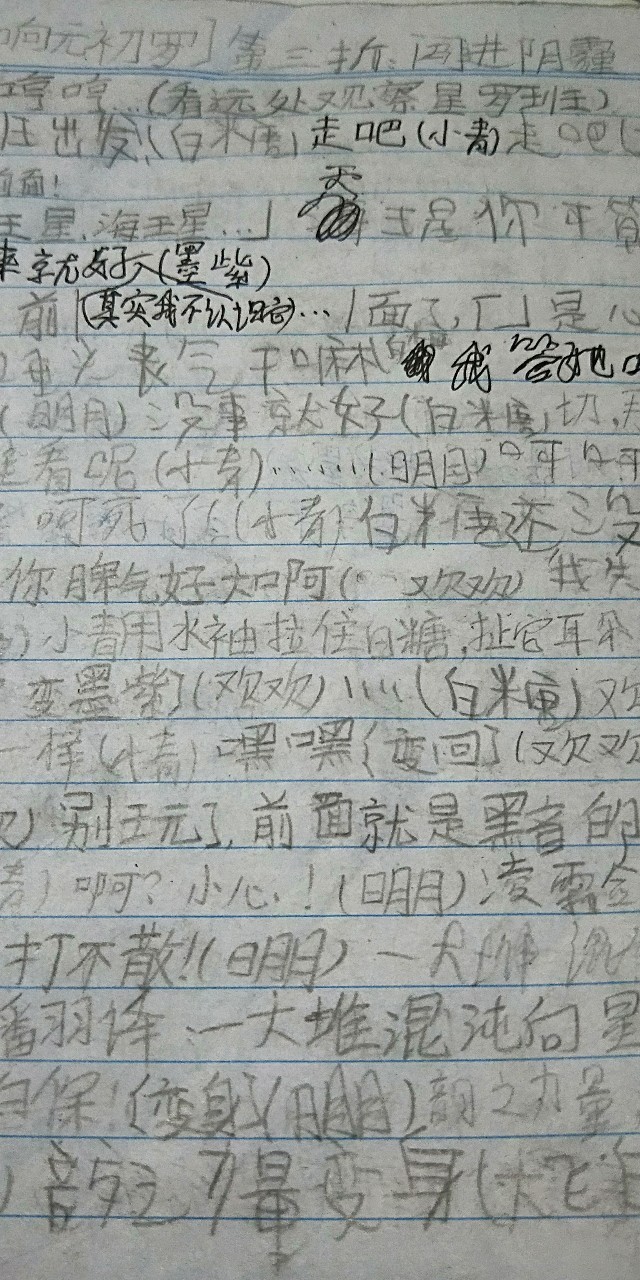 响元初罗] 第三折:闯进阴霾
哼哼…(看远处观察星罗班王)
出发!(白米糖)走吧(小青)走吧
前面!
王星,海王星…」 王是你
来就好(墨紫)
前 (其实我不认识它)… 面了,厂」是心
垂头丧气干嘛 我管她
(明月)没事就好(白米糖)切,
看呢(小青)……(明月)呵呵
呵死了!(小青)白米糖还没
你脾气好大啊(欢欢)我先
小青用水袖拉住白糖,扯它耳朵
变墨紫](欢欢)……(白米糖)欢
一样(小青)嘿嘿{变回](欢欢
别玩了,前面就是黑音的
啊?小心!(明月)凌霜剑
打不散!(明月)一大堆混
番羽译:一大堆混沌向星
自保!{变身}(明月)韵之力量
音之力量变身(大飞